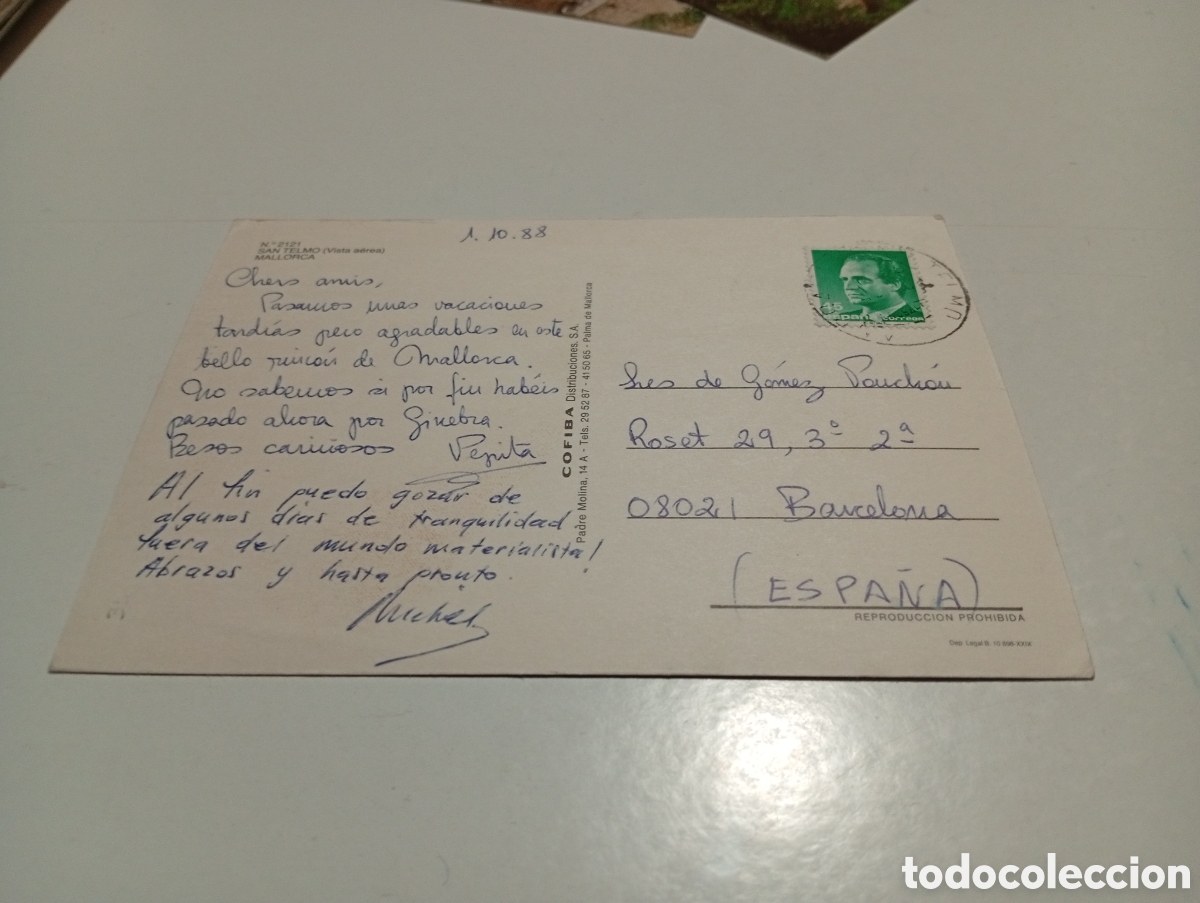 N.º 2121
SAN TELMO (Vista aérea)
MALLORCA
1.10.88
Chers amis,
Pasamos unas vacaciones
tardías pero agradables en este
bello rincón de Mallorca.
No sabemos si por fin habéis
pasado ahora por Ginebra.
Besos cariñosos Pepita
Al fin puedo gozar de
algunos días de tranquilidad
fuera del mundo materialista!
Abrazos y hasta pronto.
Michel
COFIBA Distribuciones, S.A.
Padre Molina, 14 A - Tels. 29 52 87 - 41 50 65 - Palma de Mallorca
España correos
Sres de Gómez
Roset 29, 3º 2ª
08021 Barcelona
(ESPAÑA)
REPRODUCCION PROHIBIDA
Dep. Legal B. 10.898-XXIX
todocoleccion